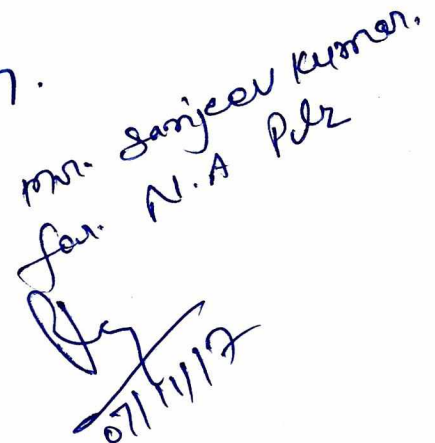 7.
Mr. Sanjeev Kumar.
for. N.A Plz
07/11/17